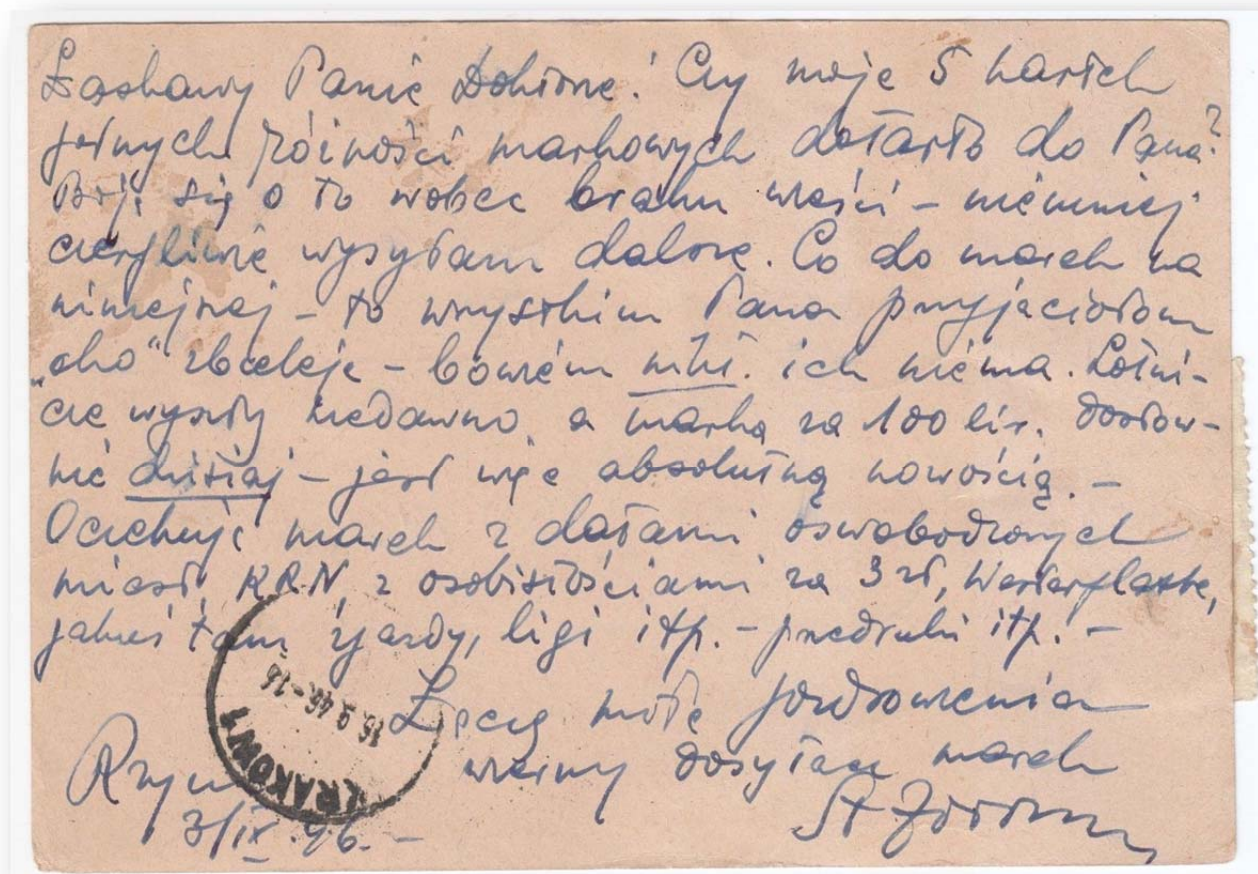 Łaskawy Panie Doktorze! Czy moje 5 kartek
pełnych różności markowych dotarło do Pana?
Boję się o to wobec braku wieści – niemniej
cierpliwie wysyłam dalsze. Co do marek na
niniejszej – to wszystkim Pana przyjaciołom
„oko" zbieleje – bowiem nikt. ich niema. Lotni-
cze wyszły niedawno, a marka za 100 lir. dosłow-
nie dzisiaj – jest więc absolutną nowością. –
Oczekuję marek z datami oswobodzonych
miast, KRN, z osobistościami za 3 zł, Westerplatte,
jakieś tam zjazdy, ligi itp. – przedruki itp. –
Łączę miłe pozdrowienia
wierny dosyłacz marek
Rzym
3/IX.46. –
St
KRAKÓW 1
15.9.46.-16